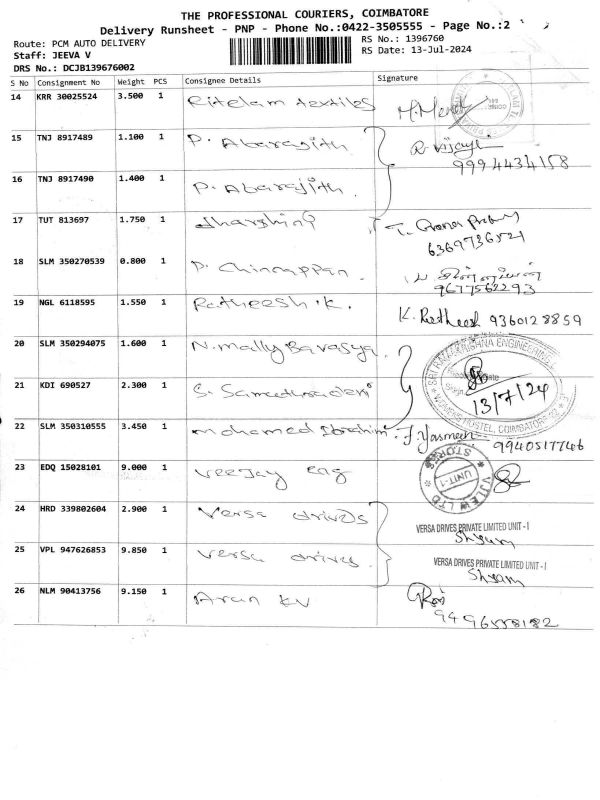 THE PROFESSIONAL COURIERS, COIMBATORE
Delivery Runsheet - PNP - Phone No.:0422-3505555 - Page No.:2
Route: PCM AUTO DELIVERY
RS No.: 1396760
Staff: JEEVA V
RS Date: 13-Jul-2024
DRS No.: DCJB139676002
S No Consignment No Weight PCS Consignee Details Signature
14 KRR 30025524 3.500 1 Ritelam textiles
15 TNJ 8917489 1.100 1 P. Abarajith
9994434158
16 TNJ 8917490 1.400 1 P. Abarajith
17 TUT 813697 1.750 1
6369736521
18 SLM 350270539 0.800 1 P. Chinnappan
9677562293
19 NGL 6118595 1.550 1 Ratheesh.K. K. Ratheesh 9360128859
20 SLM 350294075 1.600 1
21 KDI 690527 2.300 1
13/7/24
22 SLM 350310555 3.450 1 Mohamed Ibrahim J. Yasmeen
9940517746
23 EDQ 15028101 9.000 1 Veejay eng
STORES
UNIT-1
24 HRD 339802604 2.900 1 Versa drives
VERSA DRIVES PRIVATE LIMITED UNIT - I
Shyam
25 VPL 947626853 9.850 1 Versa drives
VERSA DRIVES PRIVATE LIMITED UNIT - I
Shyam
26 NLM 90413756 9.150 1 Arun KV